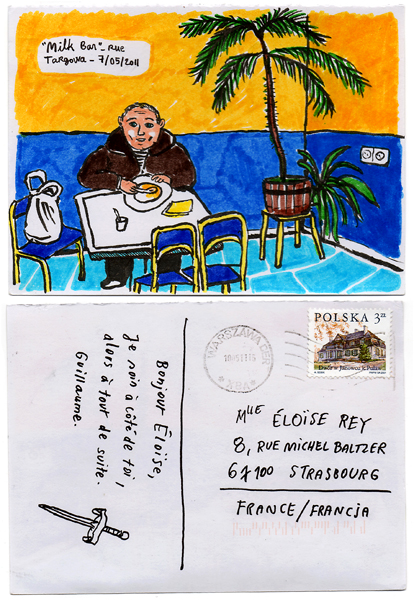 "Milk Bar" - rue
Targowa - 7/05/2011
Bonjour Éloïse,
Je suis à côté de toi,
alors à tout de suite.
Guillaume.
WARSZAWA
POLSKA 3 zł
Mlle ÉLOÏSE REY
8, RUE MICHEL BALTZER
67100 STRASBOURG
FRANCE/FRANCJA